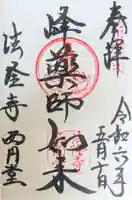 奉拝
令和六年
五月一日
峰薬師如来
法隆寺 西円堂